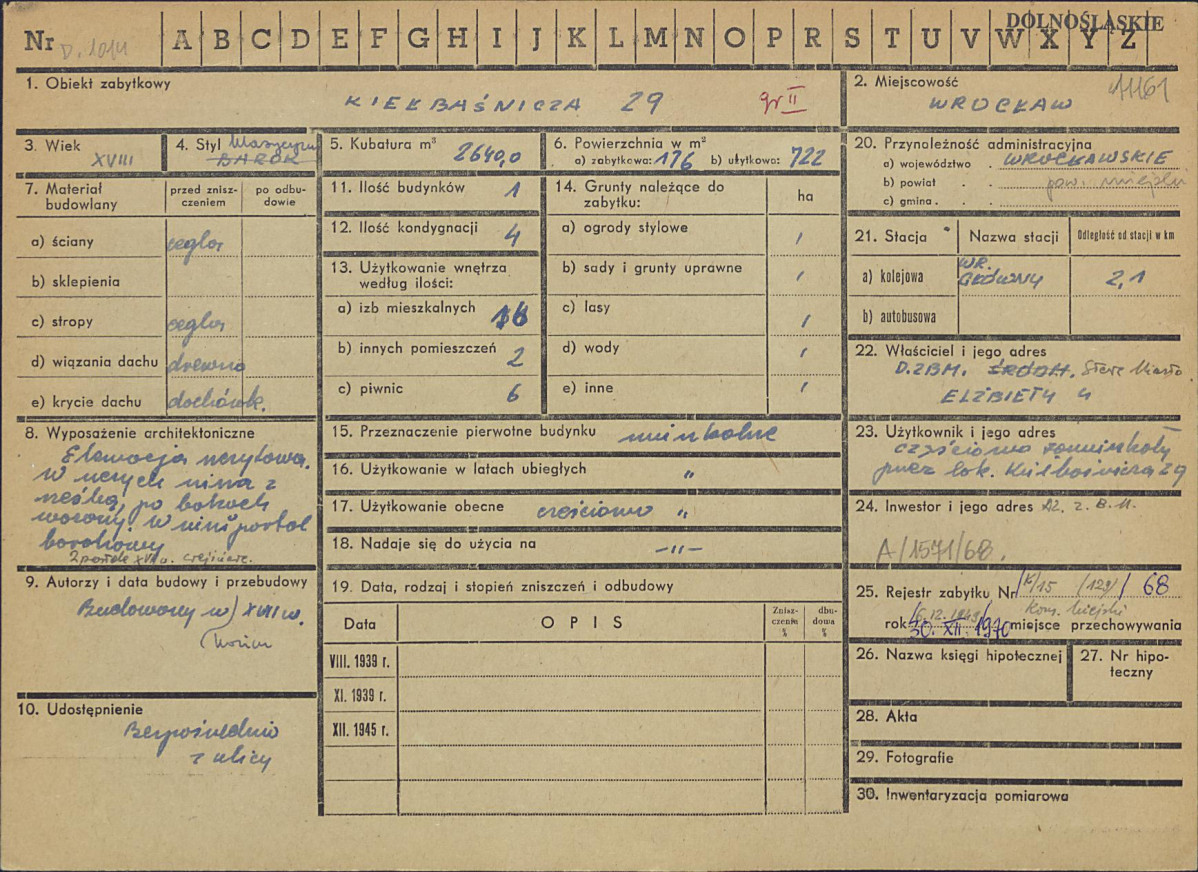 DOLNOŚLĄSKIE
Nr D. 1014 A B C D E F G H I J K L M N O P R S T U V W X Y Z
1. Obiekt zabytkowy
KIEŁBAŚNICZA 29 gr II
2. Miejscowość 1161
WROCŁAW
3. Wiek
XVIII
4. Styl
BAROK
5. Kubatura m³ 2640,0
6. Powierzchnia w m²
a) zabytkowa: 176 b) użytkowa: 722
7. Materiał budowlany
przed zniszczeniem
po odbudowie
a) ściany cegla
b) sklepienia
c) stropy cegla
d) wiązania dachu drewno
e) krycie dachu dachówk.
8. Wyposażenie architektoniczne
Elewacja
w
po bokach
w niszy portal
barokowy
2 portale XVII w.
9. Autorzy i data budowy i przebudowy
Budowany w XVIII w.
10. Udostępnienie
Bezpośrednio
z ulicy
11. Ilość budynków 1
12. Ilość kondygnacji 4
13. Użytkowanie wnętrza
według ilości:
a) izb mieszkalnych 16
b) innych pomieszczeń 2
c) piwnic 6
14. Grunty należące do
zabytku:
ha
a) ogrody stylowe /
b) sady i grunty uprawne /
c) lasy /
d) wody /
e) inne /
15. Przeznaczenie pierwotne budynku mieszkalne
16. Użytkowanie w latach ubiegłych "
17. Użytkowanie obecne częściowo "
18. Nadaje się do użycia na —"—
19. Data, rodzaj i stopień zniszczeń i odbudowy
Data
OPIS
Zniszczenia %
dbudowa %
VIII. 1939 r.
XI. 1939 r.
XII. 1945 r.
20. Przynależność administracyjna
a) województwo . WROCŁAWSKIE
b) powiat . . pow. miejski
c) gmina . . .
21. Stacja
Nazwa stacji
Odległość od stacji w km
a) kolejowa WR. GŁÓWNY 2,1
b) autobusowa
22. Właściciel i jego adres
D.Z.B.M. ŚRÓDM. Stare Miasto
ELŻBIETY 4
23. Użytkownik i jego adres
częściowo zamieszkały
przez lok. Kiełbaśnicza 29
24. Inwestor i jego adres D.Z.B.M.
A/1571/68.
25. Rejestr zabytku Nr K/15 /129/ 68
Kons. Miejski
rok 30. XII. 1970 miejsce przechowywania
26. Nazwa księgi hipotecznej
27. Nr hipoteczny
28. Akta
29. Fotografie
30. Inwentaryzacja pomiarowa